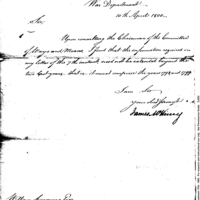 War Department
10th April 1800.
Sir
Upon consulting the Chairman of the Committee
of Ways and Means I find that the information required in
my letter of the instant need not be extended beyond the
two last years that is it must comprise the years 1798 and 1799
I am Sir
your obed servant
James McHenry
William Simmons Esq